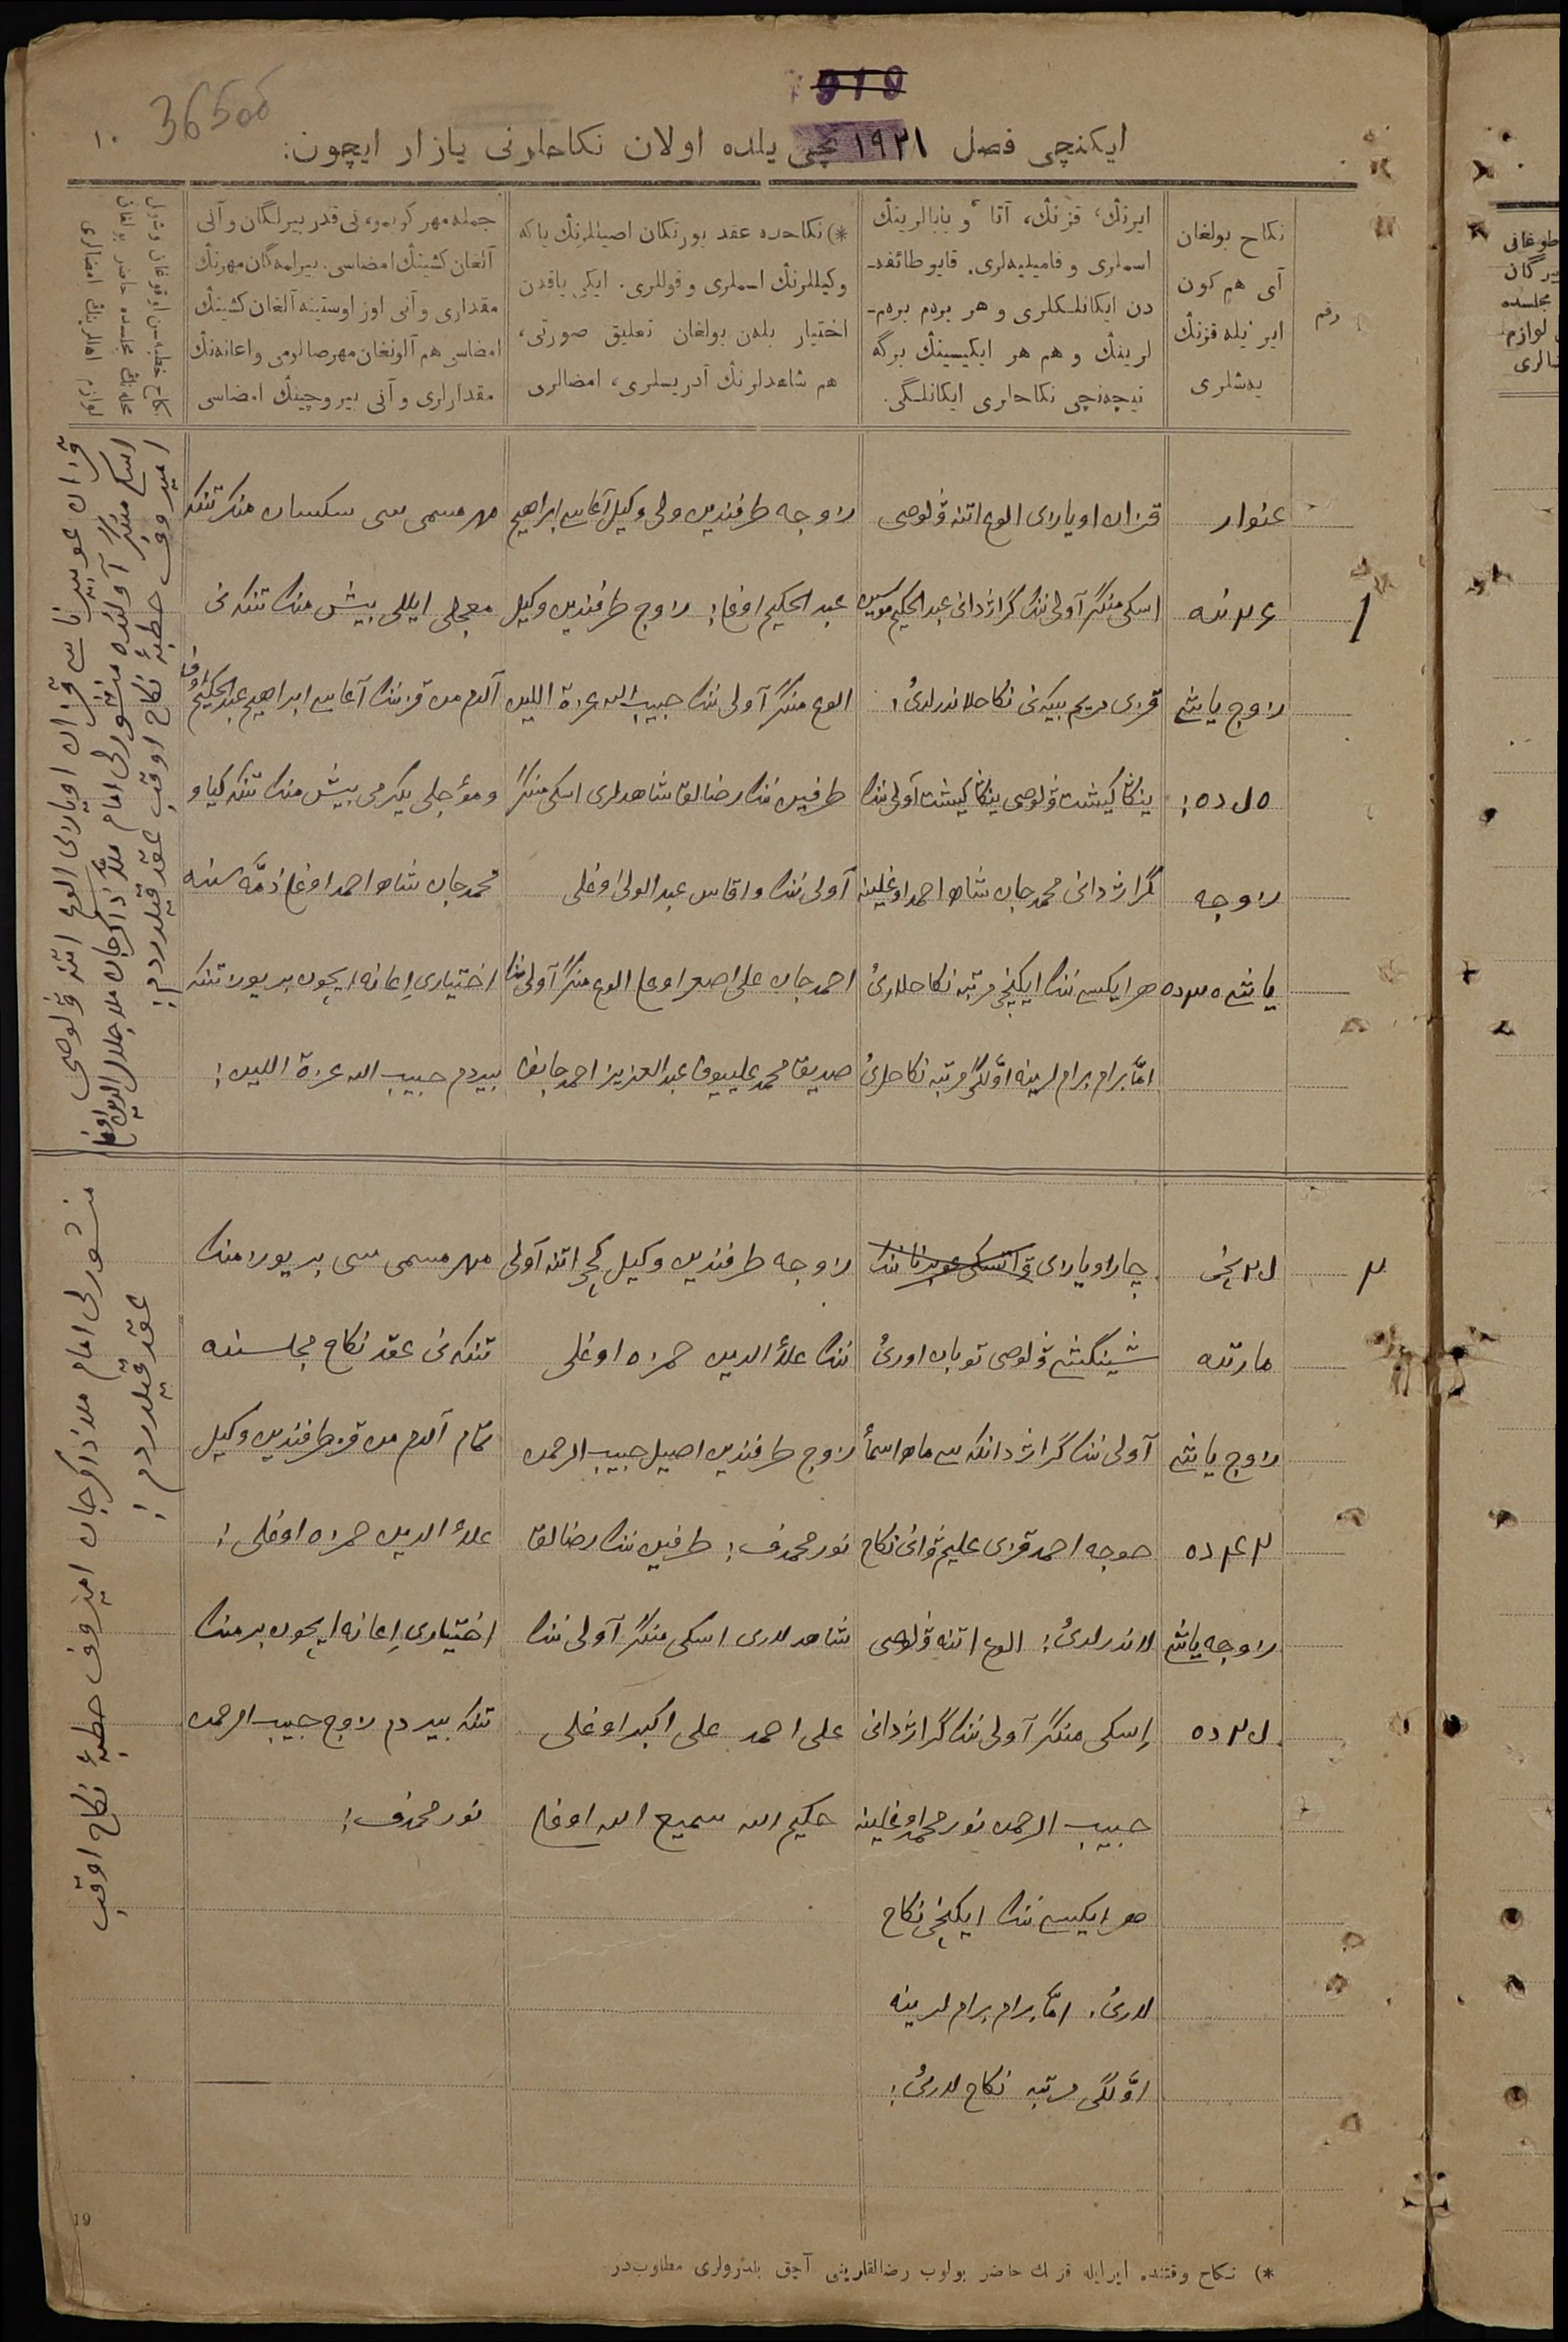 1919
36500
١٠
ايكنچی فصل ١٩٢١ نچی يلده اولان نكاحلرنی يازار ايچون:
رقم
نكاح بولغان
آی هم كون
اير ئيله قزنڭ
يەشلری
ايرنڭ، قزنڭ، آتا و بابالرينڭ
اسملری و فاميليەلری. قايو طائفه‌ـ
دن ايكانلكلری و هر بردم بردم‌ـ
لرينڭ و هم هر ايكيسينڭ برگه
نيچەنچی نكاحلری ايكانلگی.
*) نكاحده عقد يورتكان اصيللرنڭ ياكه
وكيللرنڭ اسملری و قوللری. ايكی ياقدن
اختيار بلەن بولغان تعليق صورتی،
هم شاهدلرنڭ آدريسلری، امضالری
جمله مهر كريمو، نی قدر بيرلگان و آنی
آلغان كشينڭ امضاسی. بيرلمەگان مهرنڭ
مقداری و آنی اوز اوستينه آلغان كشينڭ
امضاسی هم آلونغان مهر صالومی و اعانەنڭ
مقدارلری و آنی بيروچينڭ امضاسی
١
عنوار
٢٤ نده
زوج ياشی
٥١ ده؛
زوجه
ياشی ٣٥ ده
قزان اويازی الوغ اتنه ۋلوصی
اسكی منگر آولی ننك گراژدانی عبد الحكيم موسين
قزی مريم بيكه‌نی نكاحلاندرلدی؛
ينكا كيشت ۋلوصی ينكا كيشت آولی ننك
گراژدانی محمدجان شاه احمد اوغلينه
هر ايكيسی ننك ايكينچی مرتبه نكاحلاری
امّا برام برام لرينه اوّلگی مرتبه نكاحلری
زوجه طرفندين ولی وكيل آغاسی ابراهيم
عبد الحكيم اوغلی؛ زوج طرفندين وكيل
الوغ منگر آولی ننك حبيب الله عزة اللين
طرفين ننك رضالق شاهدلری اسكی منگر
آولی ننك وقاس عبد الولی اوغلی
احمدجان علی اصغر اوغلی الوغ منگر آولی ننك
صديق محمد علييوف عبد العزيز احمدجانف
مهر مسمی سی سكسان منك تنكه
معجلی ايللی بيش منك تنكه نی
آلدم من قزننك آغاسی ابراهيم عبد الحكيم اوف
و مؤجلی يكرمی بيش منك تنكه كياو
محمدجان شاه احمد اوغلی ذمّه سنده
اختياری اعانه ايچون بر يوز تنكه
بيردم حبيب الله عزة اللين؛
قزان اويازی الوغ اتنه ۋلوصی
اسكی منگر آولنده منشورلی امام ملا ذاكرجان ملا جلال الدين اوغلی
اميروف خطبۀ نكاح اوقب عقد قيلدردم؛
٢
٢١ نچی
مارتده
زوج ياشی
٤٢ ده
زوجه ياشی
٢١ ده
چار اويازی
شينگشی ۋلوصی توبان اوری
آولی ننك گراژدانكه سی ماه اسماء
خوجه احمد قزی نكاح
لاندرلدی؛ الوغ اتنه ۋلوصی
اسكی منگر آولی ننك گراژدانی
حبيب الرحمن نورمحمد اوغلينه
هر ايكيسی ننك ايكينچی نكاح
لاری. امّا برام برام لرينه
اوّلگی مرتبه نكاح لاری؛
زوجه طرفندين وكيل كچی اتنه آولی
ننك علاء الدين حمزه اوغلی
زوج طرفندين اصيل حبيب الرحمن
نورمحمدف؛ طرفين ننك رضالق
شاهدلری اسكی منگر آولی ننك
علی احمد علی اكبر اوغلی
حكيم الله سميع الله اوغلی
مهر مسمی سی بر يوز منك
تنكه نی عقد نكاح مجلسنده
تمام آلدم من قز طرفندين وكيل
علاء الدين حمزه اوغلی؛
اختياری اعانه ايچون بر منك
تنكه بيردم زوج حبيب الرحمن
نورمحمدف؛
منشورلی امام ملا ذاكرجان اميروف خطبۀ نكاح اوقب
عقد قيلدردم؛
*) نكاح وقتنده ايرايله قز ك حاضر بولوب رضالقلرينی آچق بلدرولری مطلوب‌در
19